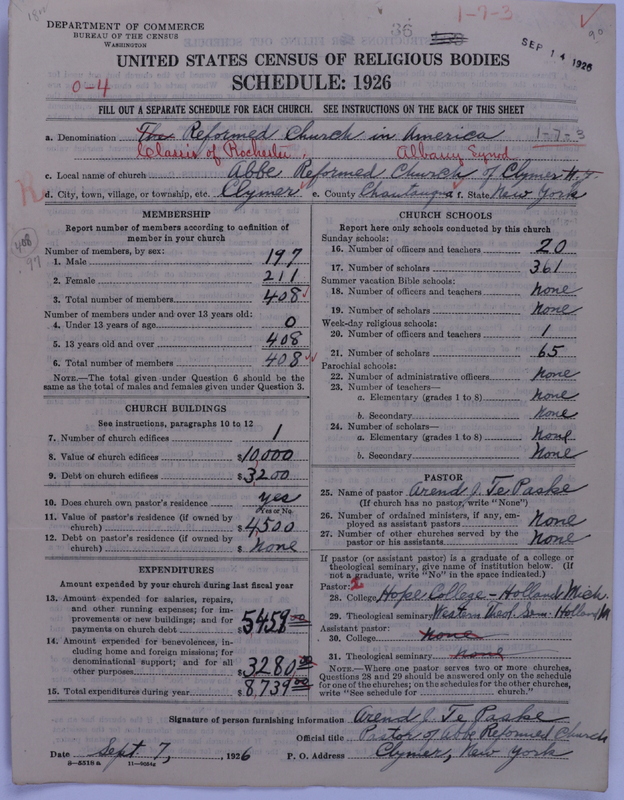 1-7-3
DEPARTMENT OF COMMERCE
BUREAU OF THE CENSUS
WASHINGTON
36
SEP 14 1926
90
UNITED STATES CENSUS OF RELIGIOUS BODIES
SCHEDULE: 1926
0-4
FILL OUT A SEPARATE SCHEDULE FOR EACH CHURCH. SEE INSTRUCTIONS ON THE BACK OF THIS SHEET
a. Denomination The Reformed Church in America 1-7-3
Classis of Rochester. Albany Synod
c. Local name of church Abbe Reformed Church of Clymer N.Y.
R
d. City, town, village, or township, etc. Clymer e. County Chautauqua f. State New York
MEMBERSHIP
Report number of members according to definition of
member in your church
408
97
Number of members, by sex:
1. Male 197
2. Female 211
3. Total number of members 408
Number of members under and over 13 years old:
4. Under 13 years of age 0
5. 13 years old and over 408
6. Total number of members 408
NOTE.—The total given under Question 6 should be the
same as the total of males and females given under Question 3.
CHURCH BUILDINGS
See instructions, paragraphs 10 to 12
7. Number of church edifices 1
8. Value of church edifices $10,000
9. Debt on church edifices $3200
10. Does church own pastor's residence yes
Yes or No
11. Value of pastor's residence (if owned by
church) $4500
12. Debt on pastor's residence (if owned by
church) $none
EXPENDITURES
Amount expended by your church during last fiscal year
13. Amount expended for salaries, repairs,
and other running expenses; for im-
provements or new buildings; and for
payments on church debt $5459 00
14. Amount expended for benevolences, in-
cluding home and foreign missions; for
denominational support; and for all
other purposes $3280 00
15. Total expenditures during year $8,739 00
CHURCH SCHOOLS
Report here only schools conducted by this church
Sunday schools:
16. Number of officers and teachers 20
17. Number of scholars 361
Summer vacation Bible schools:
18. Number of officers and teachers none
19. Number of scholars none
Week-day religious schools:
20. Number of officers and teachers 1
21. Number of scholars 65
Parochial schools:
22. Number of administrative officers none
23. Number of teachers—
a. Elementary (grades 1 to 8) none
b. Secondary none
24. Number of scholars—
a. Elementary (grades 1 to 8) none
b. Secondary none
PASTOR
25. Name of pastor Arend J. Te Paske
(If church has no pastor, write "None")
26. Number of ordained ministers, if any, em-
ployed as assistant pastors None
27. Number of other churches served by the
pastor or his assistants None
If pastor (or assistant pastor) is a graduate of a college or
theological seminary, give name of institution below. (If
not a graduate, write "No" in the space indicated.)
Pastor: 2
28. College Hope College - Holland Mich.
29. Theological seminary Western Theol. Sem. Holland M
Assistant pastor:
30. College none
31. Theological seminary none
NOTE.—Where one pastor serves two or more churches,
Questions 28 and 29 should be answered only on the schedule
for one of the churches; on the schedules for the other churches,
write "See schedule for church."
Signature of person furnishing information Arend J. Te Paske
Official title Pastor of Abbe Reformed Church
Date Sept 7, , 1926 P. O. Address Clymer, New York
8-5518 a 11-9034a